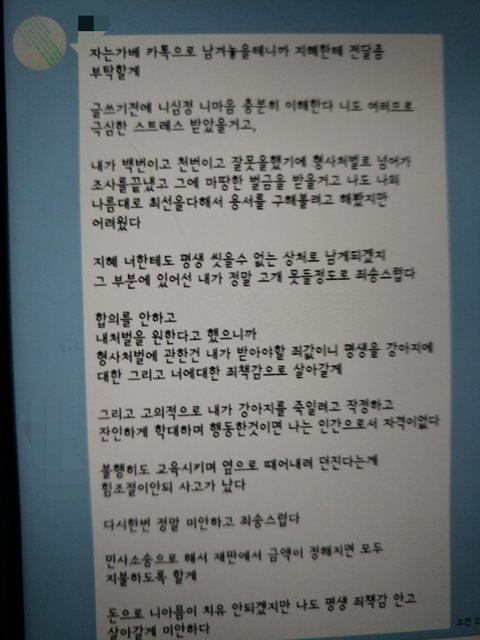 자는가베 카톡으로 남겨놓을테니까 지혜한테 전달좀
부탁할게
글쓰기전에 니심정 니마음 충분히 이해한다 니도 여러므로
극심한 스트레스 받았을거고,
내가 백번이고 천번이고 잘못을했기에 형사처벌로 넘어가
조사를끝냈고 그에 마땅한 벌금을 받을거고 나도 나외
나름대로 최선을다해서 용서를 구해볼려고 해봤지만
어려웠다
지혜 너한테도 평생 씻을수 없는 상처로 남게되겠지
그 부분에 있어선 내가 정말 고개 못들정도로 죄송스럽다
합의를 안하고
내처벌을 원한다고 했으니까
형사처벌에 관한건 내가 받아야할 죄값이니 평생을 강아지에
대한 그리고 너에대한 죄책감으로 살아갈게
그리고 고의적으로 내가 강아지를 죽일려고 작정하고
잔인하게 학대하며 행동한것이면 나는 인간으로서 자격이없다
불행히도 교육시키며 옆으로 때어내려 던진다는게
힘조절이안되 사고가 났다
다시한번 정말 미안하고 죄송스럽다
민사소송으로 해서 재판에서 금액이 정해지면 모두
지불하도록 할게
돈으로 니아픔이 치유 안되겠지만 나도 평생 죄책감 안고
살아갈게 미안하다
오전 2